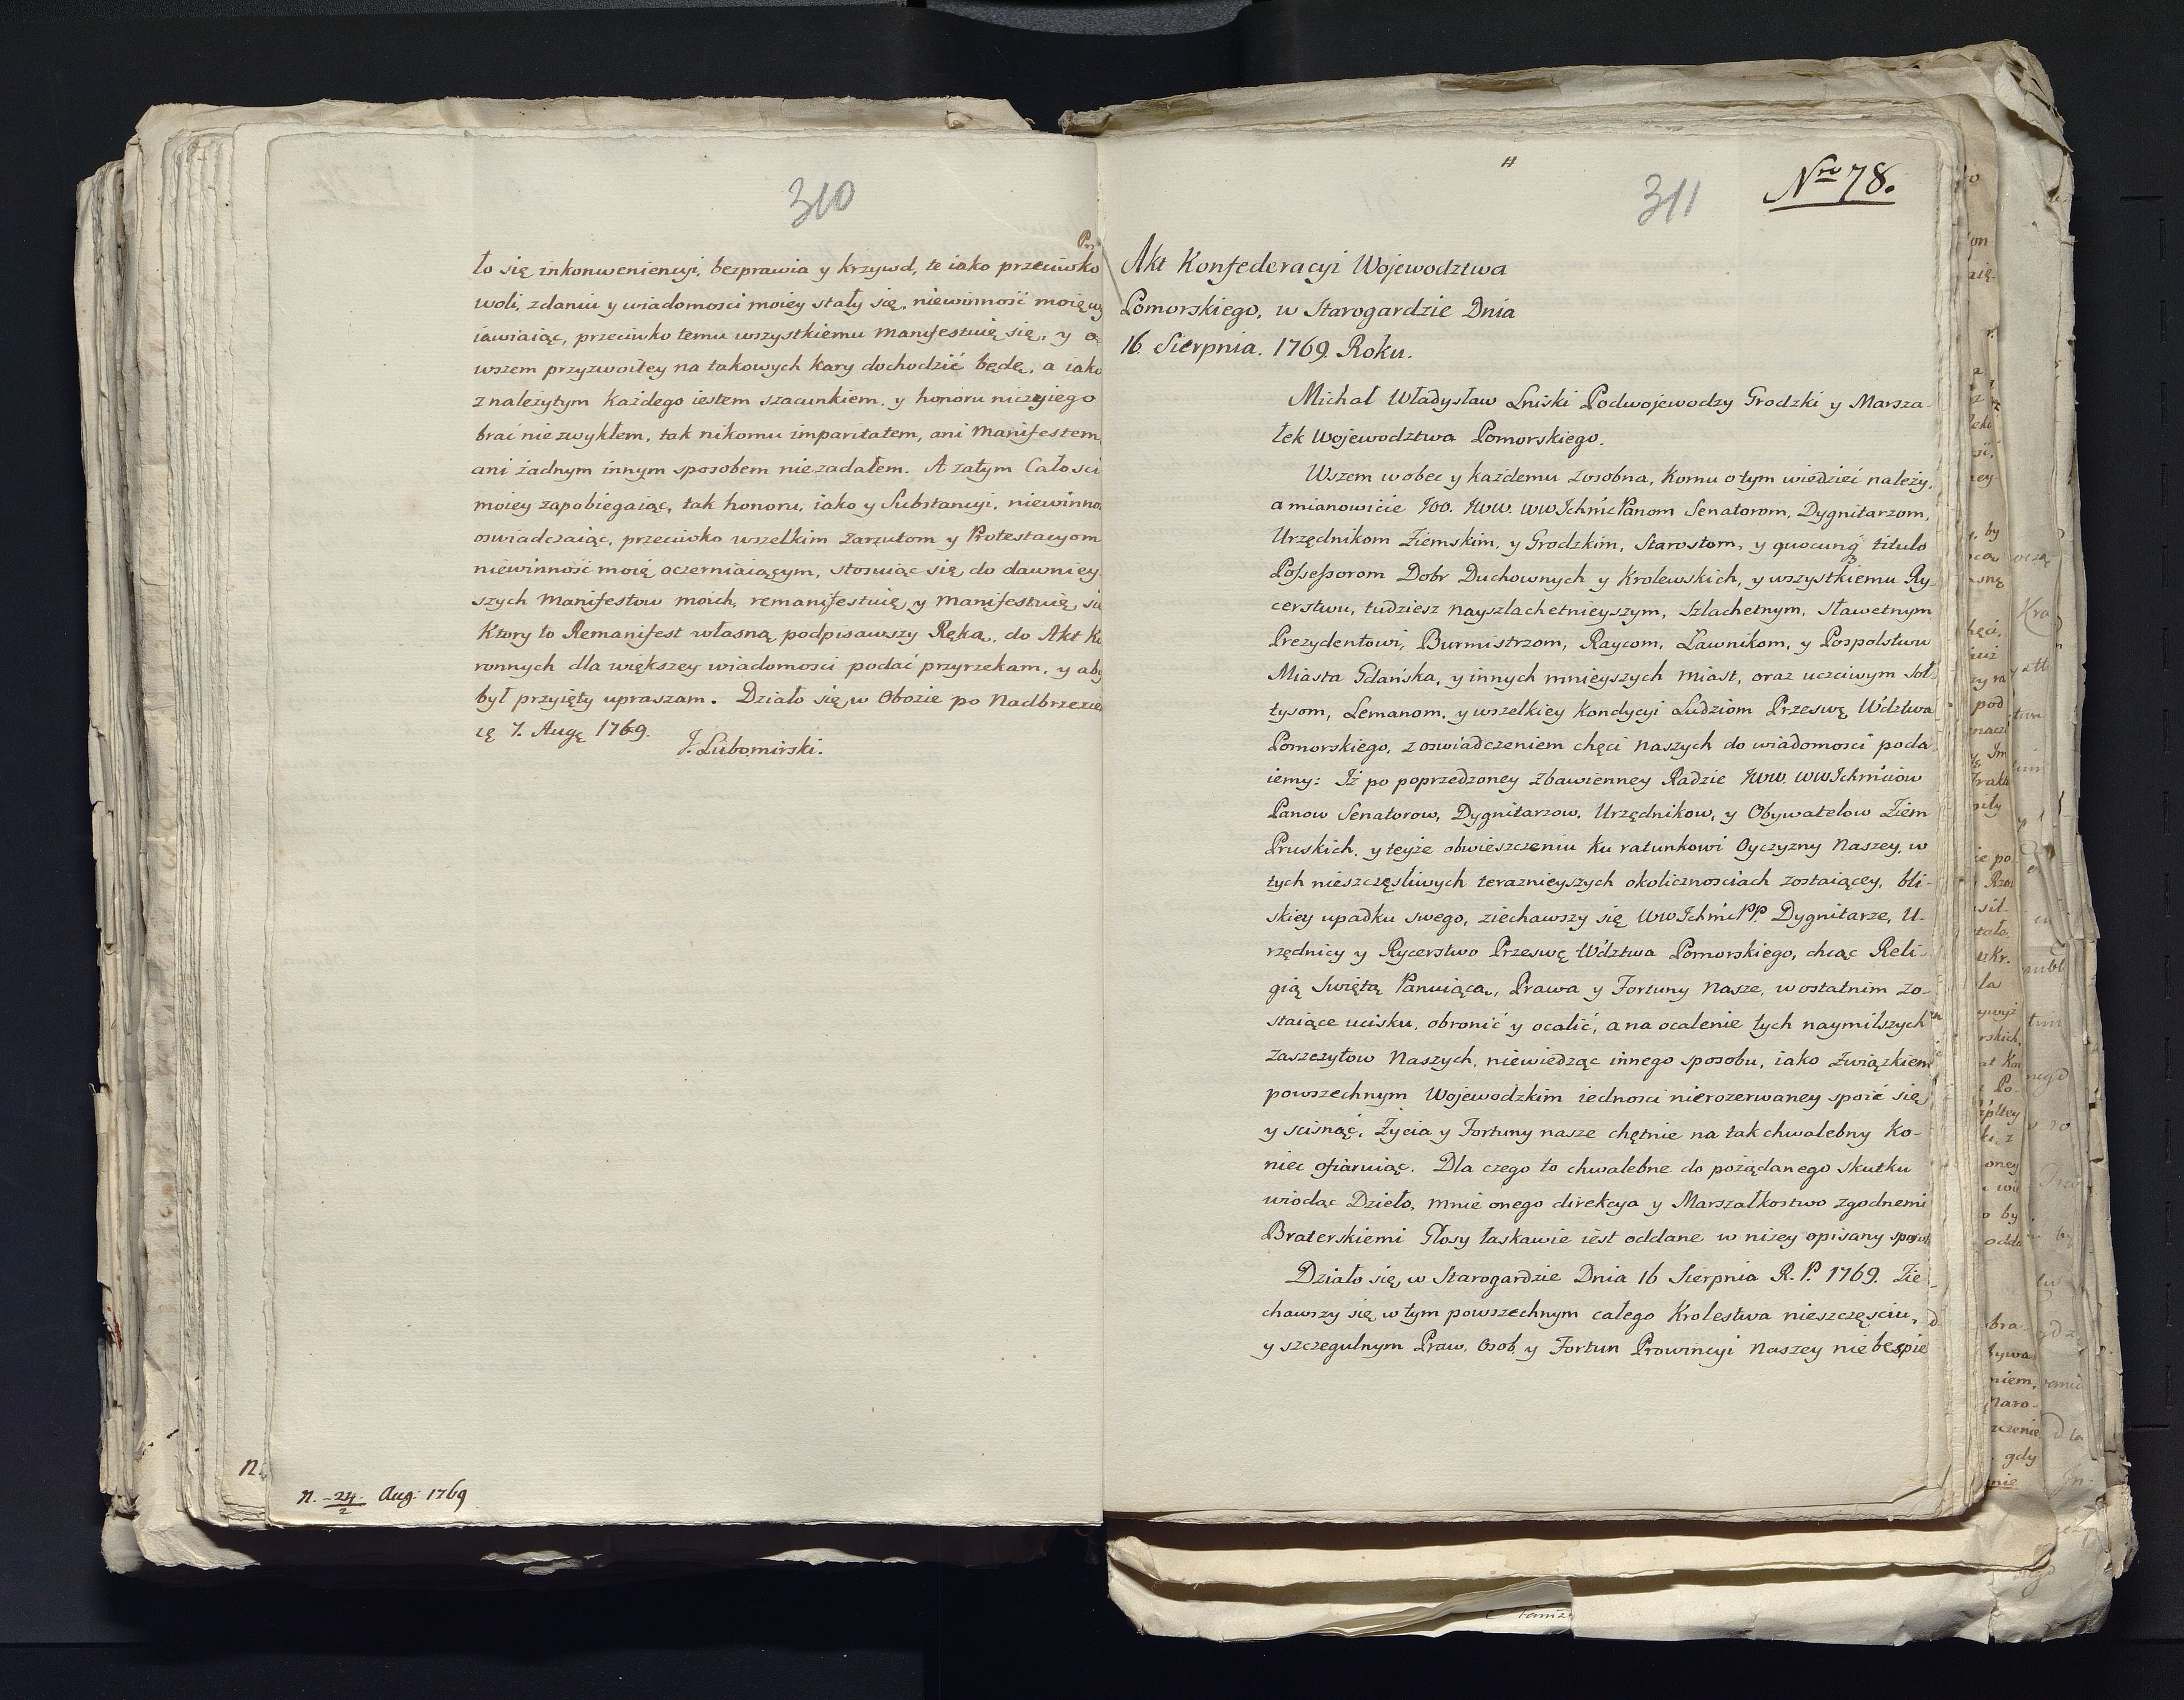 310
to się inkonweniencyi, bezprawia y krzywd, te iako przeciwko
woli, zdaniu y wiadomosci moiey stały się, niewinność moię
iawiaiąc, przeciwko temu wszystkiemu manifestuię się, y
wszem przyzwoitey na takowych kary dochodzić będę, a iako
z należytym każdego iestem szacunkiem, y honoru niczyiego
brać niezwykłem, tak nikomu imparitatem, ani Manifestem,
ani żadnym innym sposobem niezadałem. A zatym Całosci
moiey zapobiegaiąc, tak honoru, iako y Substancyi, niewinno
oswiadczaiąc, przeciwko wszelkim zarzutom y Protestacyom
niewinność moię oczerniaiącym, stosuiąc się do dawniey
szych Manifestow moich, remanifestuię y Manifestuię się
Ktory to Remanifest własną podpisawszy Ręką, do Akt Ko
ronnych dla większey wiadomosci podać przyrzekam, y aby
był przyięty upraszam. Działo się w Obozie po Nadbrzezie
ię 7. Augę 1769.
J. Lubomirski.
n. 24/2 Aug: 1769
311
Nro 78.
Akt Konfederacyi Wojewodztwa
Pomorskiego, w Starogardzie Dnia
16. Sierpnia. 1769. Roku.
Michał Władysław Lniski Podwojewodzy Grodzki y Marsza
łek Wojewodztwa Pomorskiego.
Wszem wobec y każdemu zosobna, komu o tym wiedzieć należy,
a mianowicie JOO. JWW. WW Ichmć Panom Senatorom, Dygnitarzom,
Urzędnikom Ziemskim, y Grodzkim, Starostom, y quocunqꝫ titulo
Possessorom Dobr Duchownych y Krolewskich, y wszystkiemu Ry
cerstwu, tudziesz Nayszlachetnieyszym, Szlachetnym, Sławetnym
Prezydentowi, Burmistrzom, Raycom, Ławnikom, y Pospolstwu
Miasta Gdańska, y innych mnieyszych miast, oraz uczciwym Soł
tysom, Lemanom, y wszelkiey Kondycyi Ludziom Przeswę Wdztwa
Pomorskiego, z oswiadczeniem chęci naszych do wiadomosci poda
iemy: Iż po poprzedzoney zbawienney Radzie JWW. WW Ichmciow
Panow Senatorow, Dygnitarzow, Urzędnikow, y Obywatelow Ziem
Pruskich, y teyże obwieszczeniu ku ratunkowi Oyczyzny Naszey, w
tych nieszczęsliwych teraznieyszych okolicznosciach zostaiącey, bli-
skiey upadku swego, ziechawszy się WW Ichmć PP. Dygnitarze, U-
rzędnicy y Rycerstwo Przeswę Wdztwa Pomorskiego, chcąc Reli-
gią Swiętą Panuiącą, Prawa y Fortuny Nasze, w ostatnim zo-
staiące ucisku, obronić y ocalić, a na ocalenie tych naymilszych
zaszczytow Naszych, niewiedząc innego sposobu, iako Związkiem
powszechnym Wojewodzkim iednosci nierozerwaney spoić się
y scisnąć, Życia y Fortuny nasze chętnie na tak chwalebny Ko-
niec ofiaruiąc. Dla czego to chwalebne do pożądanego skutku
wiodąc Dzieło, mnie onego direkcya y Marszałkostwo zgodnemi
Braterskiemi Głosy łaskawie iest oddane w niżey opisany sposob
Działo się w Starogardzie Dnia 16 Sierpnia R. P. 1769. Zie
chawszy się w tym powszechnym całego Krolestwa nieszczęsciu,
y szczegulnym Praw, Osob, y Fortun Prowincyi Naszey niebespie